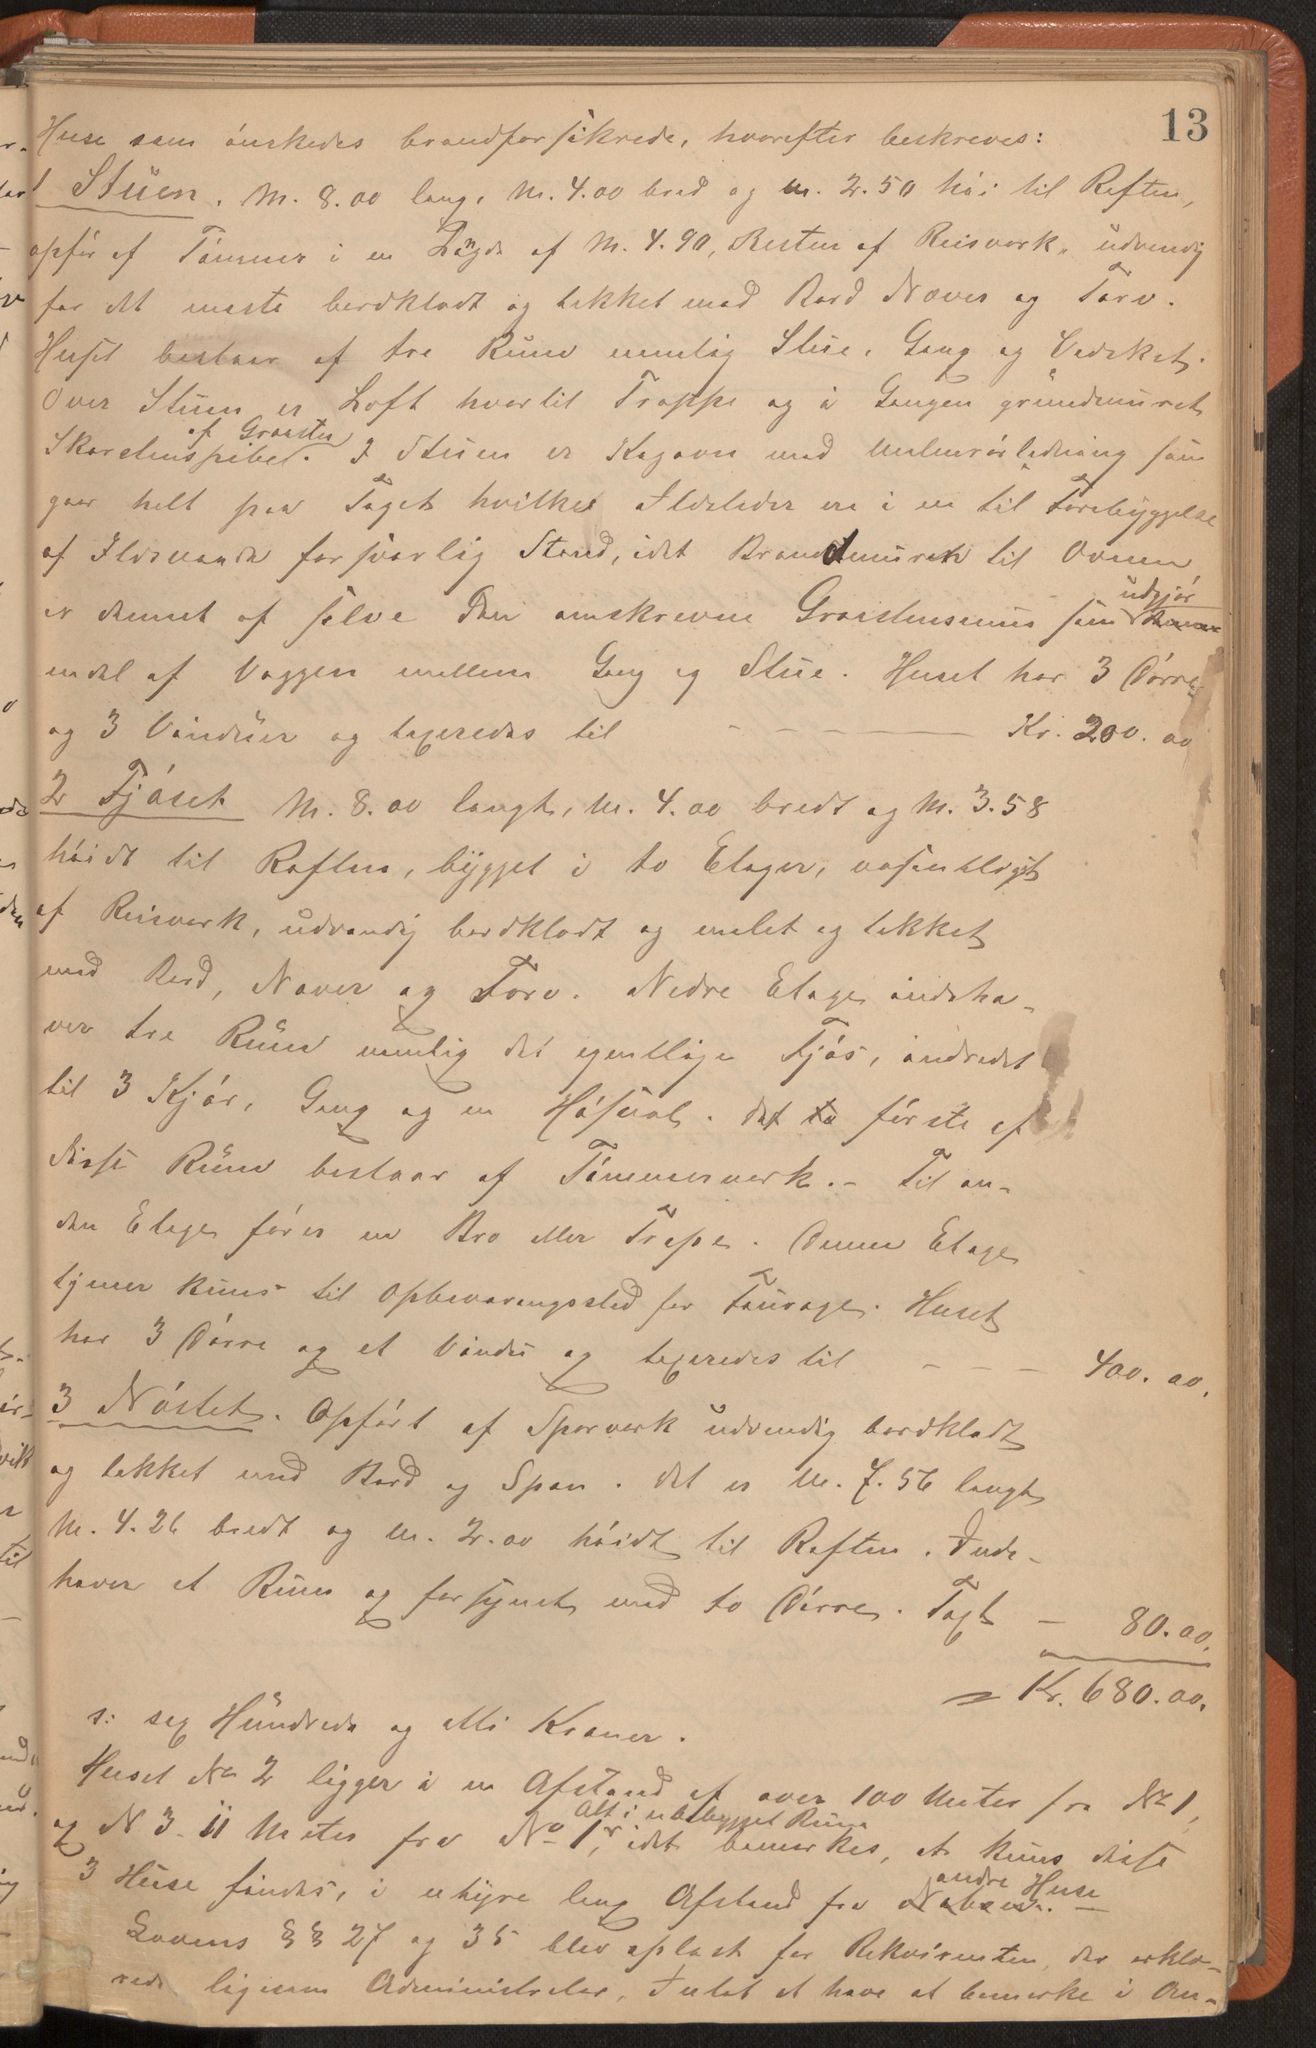 13
Huse som ønskedes brandforsikrede, hvorefter beskreves:
1 Stuen. M. 8.00 lang, M. 4.00 bred og M. 2.50 høi til Raften,
opför af Tømmer i en Lägde af M. 4.90, Resten af Reisverk, udvendig
for det meste bordklædt og tækket med Bord Næver og Torv.
Huset bestaar af tre Rum nemlig Stue, Gang og Vedsket.
Over Stuen er Loft hvortil Trappe og i Gangen grundmuret
Skorstenspibe af Graasten. I Stuen er Kogovn med Malmrørledning som
gaar helt paa Taget hvilke Ildsteder ere i en til Forebyggelse
af Ildsvaade forsvarlig Stand, idet Brandmuren til Ovnen
er dannet af selve den omskrevne Graastensmur som udgjør
endel af Væggen mellem Gang og Stue. Huset har 3 Dørre
og 3 Vinduer og taxeredes til - - - - - Kr. 200.00
2 Fjøset M. 8.00 langt, M. 4.00 bredt og M. 3.58
høidt til Raften, bygget i to Etager, væsentligst
af Reisverk, udvendig bordklædt og malet og tækket
med Bord, Næver og Torv. Nedre Etage indeha-
ver tre Rum nemlig det egentlige Fjøs, indredet
til 3 Kjør, Gang og en Høsval. Det to første af
disse Rum bestaar af Tømmerverk. - Til an-
den Etage fører en Bro eller Trape. Denne Etage
tjener kuns til Opbevaringssted for Fourage. Huset
har 3 Dørre og et Vindu og taxeredes til - - - 400.00.
3 Nøstet. Opført af Sperverk udvendig bordklædt
og tækket med Bord og Spon. Det er M. 7.56 langt
M. 4.26 bredt og M. 2.00 høidt til Raften. Inde-
haver et Rum og forsynet med to Dørre. Taxt - 80.00.
= Kr. 680.00.
s: sex Hundrede og otti Kroner.
Huset No 2 ligger i en Afstand af over 100 Meter fra No 1,
og N 3 - 11 Meter fra No 1, Alt i ubebygget Rum idet bemærkes, at kuns disse
3 Huse findes, i uhyre lang Afstand fra andre Huse
Lovens §§ 27 og 35 blev oplæst for Rekvirenten, der erklæ-
rede ligesom Administrator, Intet at have at bemærke i An-